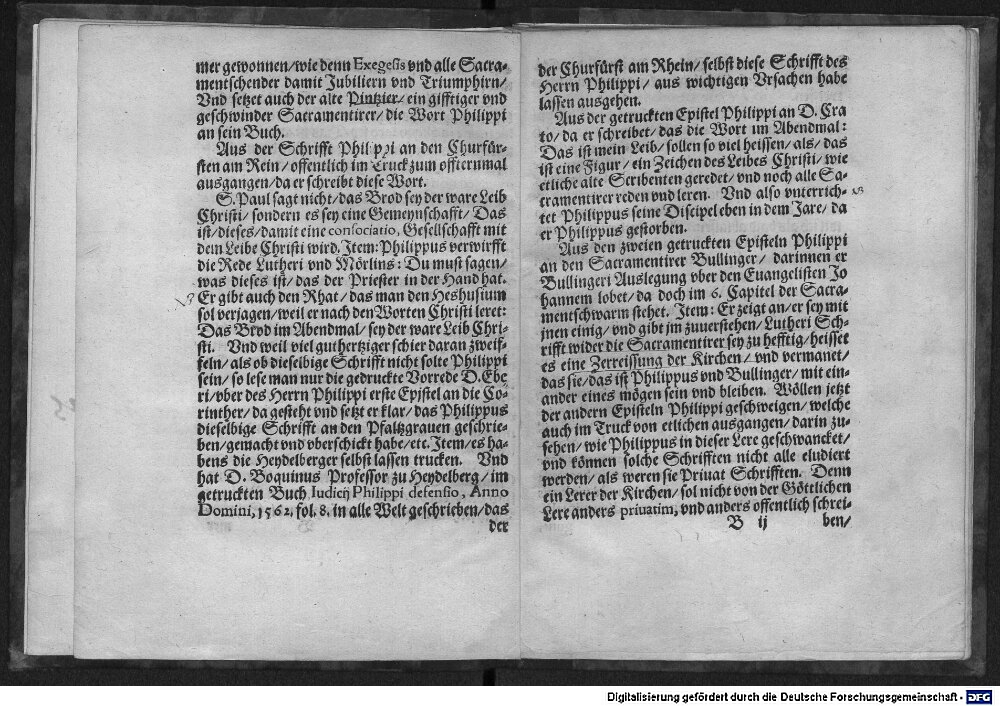 mer gewonnen/wie denn Exegesis vnd alle Sacra-
mentschender damit Jubiliern vnd Triumphirn/
Vnd setzet auch der alte Pintzier/ ein gifftiger vnd
geschwinder Sacramentirer/ die Wort Philippi
an sein Buch.
Aus der Schrifft Philippi an den Churfür-
sten am Rein/ offentlich im Truck zum offternmal
ausgangen/ da er schreibt diese Wort.
S. Paul sagt nicht/ das Brod sey der ware Leib
Christi/ sondern es sey eine Gemeynschafft/ Das
ist/ dieses/ damit eine consociatio, Gesellschafft mit
dem Leibe Christi wird. Item: Philippus verwirfft
die Rede Lutheri vnd Mörlins: Du must sagen/
was dieses ist/ das der Priester in der Hand hat.
Er gibt auch den Rhat/ das man den Heshusium
sol verjagen/ weil er nach den Worten Christi leret:
Das Brod im Abendmal/ sey der ware Leib Chri-
sti. Vnd weil viel guthertziger schier daran zweif-
feln/ als ob dieselbige Schrifft nicht solte Philippi
sein/ so lese man nur die gedruckte Vorrede D. Ebe-
ri/ vber des Herrn Philippi erste Epistel an die Co-
rinther/ da gesteht vnd setzt er klar/ das Philippus
dieselbige Schrifft an den Pfaltzgrauen geschrie-
ben/ gemacht vnd vberschickt habe/ etc. Item/ es ha-
bens die Heydelberger selbst lassen trucken. Vnd
hat D. Boquinus Professor zu Heydelberg/ im
getruckten Buch Iudicij Philippi defensio, Anno
Domini, 1562. fol. 8. in alle Welt geschrieben/ das
der
der Churfürst am Rhein/ selbst diese Schrifft des
Herrn Philippi/ aus wichtigen Vrsachen habe
lassen ausgehen.
Aus der getruckten Epistel Philippi an D. Cra
to/ da er schreibet/ das die Wort im Abendmal:
Das ist mein Leib/ sollen so viel heissen/ als/ das
ist eine Figur/ ein Zeichen des Leibes Christi/ wie
etliche alte Scribenten geredet/ vnd noch alle Sa-
cramentirer reden vnd leren. Vnd also vnterrich-
tet Philippus seine Discipel eben in dem Jare/ da
er Philippus gestorben.
Aus den zweien getruckten Episteln Philippi
an den Sacramentirer Bullinger/ darinnen er
Bullingeri Auslegung vber den Euangelisten Jo
hannem lobet/ da doch im 6. Capitel der Sacra-
mentschwarm stehet. Item: Er zeigt an/ er sey mit
jnen einig/ vnd gibt jm zuuerstehen/ Lutheri Sch-
rifft wider die Sacramentirer sey zu hefftig/ heisset
es eine Zerreissung der Kirchen/ vnd vermanet/
das sie/ das ist Philippus vnd Bullinger/ mit ein-
ander eines mögen sein vnd bleiben. Wöllen jetzt
der andern Episteln Philippi geschweigen/ welche
auch im Truck von etlichen ausgangen/ darin zu-
sehen/ wie Philippus in dieser Lere geschwancket/
vnd können solche Schrifften nicht alle eludiert
werden/ als weren sie Priuat Schrifften. Denn
ein Lerer der Kirchen/ sol nicht von der Göttlichen
Lere anders priuatim, vnd anders offentlich schrei-
B ij ben/
Digitalisierung gefördert durch die Deutsche Forschungsgemeinschaft - DFG